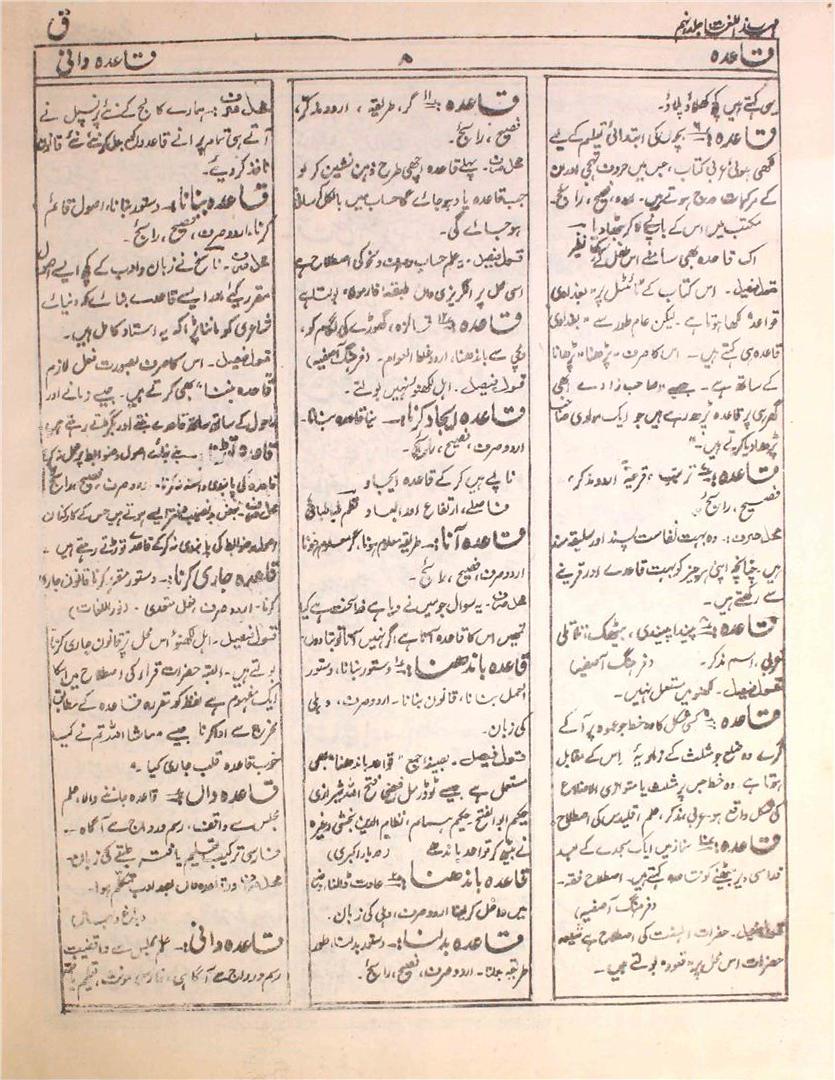 مہذب اللغات جلد نہم
ق
قاعدہ
۸
قاعدہ دانی
ہی کہتے ہیں کچھ کھلاؤ پلاؤ۔
قاعدہ: بچوں کی ابتدائی تعلیم کے لیے
لکھی ہوئی عربی کتاب، جس میں حروف تہجی اور ان
کے مرکبات درج ہوتے ہیں۔ اردو، فصیح، رائج۔
مکتب میں اس کے
اک قاعدہ بھی سامنے اس
قول فیصل۔ اس کتاب کے ٹائٹل پر "بغدادی
قواعد" لکھا ہوتا ہے۔ لیکن عام طور سے "بغدادی
قاعدہ ہی کہتے ہیں۔ اس کا صرف "پڑھنا" پڑھانا
کے ساتھ ہے۔ جیسے "صاحب زادے ابھی
گھر ہی پر قاعدہ پڑھ رہے ہیں جو ایک مولوی صاحب
پڑھا دیا کرتے ہیں۔"
قاعدہ: ترتیب، قرینہ اردو مذکر،
فصیح، رائج
محل صرف: وہ بہت نفاست پسند اور سلیقہ مند
ہیں چنانچہ اپنی ہر چیز کو بہت قاعدے اور قرینے
سے رکھتے ہیں۔
قاعدہ: پیندا، پیندی، بیٹھک، تلا، تلی
عربی، اسم مذکر۔ (فرہنگ آصفیہ)
قول فیصل۔ لکھنؤ میں مستعمل نہیں۔
قاعدہ: کسی شکل کا وہ خط جو عمود پر آ کے
گرے وہ ضلع جو مثلث کے زاویۂ راس کے مقابل
ہوتا ہے۔ وہ خط جس پر مثلث یا متوازی الاضلاع
کی شکل واقع ہو۔ عربی مذکر، علم اقلیدس کی اصطلاح
قاعدہ: نماز میں ایک سجدے کے بعد
ذرا سی دیر بیٹھنے کو قاعدہ کہتے ہیں۔ اصطلاح فقہ۔
(فرہنگ آصفیہ)
قول فیصل۔ حضرات اہلسنت کی اصطلاح ہے شیعہ
حضرات اس محل پر "قعود" بولتے ہیں۔
قاعدہ: گر، طریقہ، اردو مذکر،
فصیح، رائج۔
محل صرف۔ پہلے قاعدہ اچھی طرح ذہن نشین کر لو
جب قاعدہ یاد ہو جائے گا حساب میں بالکل آسانی
ہو جائے گی۔
قول فیصل۔ یہ علم حساب و صرف و نحو کی اصطلاح ہے
اسی محل پر انگریزی داں طبقہ "فارمولا" بولتا ہے
قاعدہ: قائزہ، گھوڑے کی لگام کو،
دمچی سے باندھنا، اردو غلط العوام۔ (فرہنگ آصفیہ)
قول فیصل۔ اہل لکھنؤ نہیں بولتے۔
قاعدہ ایجاد کرنا۔ نیا قاعدہ بنانا۔
اردو صرف، فصیح، رائج۔
ناپے ہیں کر کے قاعدہ ایجاد
فاصلے، ارتفاع اور ابعاد نظم طباطبائی
قاعدہ آنا: طریقہ معلوم ہونا، گر معلوم ہونا
اردو صرف، فصیح، رائج۔
محل صرف۔ یہ سوال جو میں نے دیا ہے کیا
تمہیں اس کا قاعدہ آتا ہے اگر نہیں آتا تو بتا دوں
قاعدہ باندھنا: دستور بنانا، دستور
العمل بنانا، قانون بنانا۔ اردو صرف، دہلی
کی زبان۔
قول فیصل۔ بصیغۂ جمع "قواعد باندھنا" بھی
مستعمل ہے جیسے ٹوڈر مل فیضی، فتح اللہ شیرازی
حکیم ابوالفتح حکیم ہمام، نظام الدین بخشی وغیرہ
نے بیٹھ کر قواعد باندھے (دربار اکبری)
قاعدہ باندھنا: عادت ڈالنا،
میں داخل کر لینا اردو صرف، دہلی کی زبان۔
قاعدہ بدلنا: دستور بدلنا، طور
طریقہ بدلنا۔ اردو صرف، فصیح، رائج۔
محل صرف: ہمارے کالج کے نئے پرنسپل نے
آتے ہی تمام پرانے قاعدے بدل کر نئے نئے قانون
نافذ کر دیے۔
قاعدہ بنانا: دستور بنانا، اصول قائم
کرنا، اردو صرف، فصیح، رائج۔
محل صرف۔ ناسخ نے زبان و ادب کے کچھ ایسے اصول
مقرر کیے اور ایسے قاعدے بنائے کہ دنیائے
شاعری کو ماننا پڑا کہ یہ استاد کامل ہیں۔
قول فیصل۔ اس کا صرف بصورت فعل لازم
"قاعدہ بننا" بھی کرتے ہیں۔ جیسے زمانے اور
ماحول کے ساتھ ساتھ قاعدے بنتے اور بگڑتے رہتے ہیں
قاعدہ توڑنا: بنے بنائے اصول و ضوابط پر عمل نہ کرنا
قاعدے کی پابندی نہ کرنا۔ اردو صرف، فصیح، رائج
محل صرف۔ بعض ایسے ہوتے ہیں جس کے کارکنان
اصول و ضوابط کی پابندی نہ کر کے قاعدے توڑتے رہتے ہیں۔
قاعدہ جاری کرنا: دستور مقرر کرنا، قانون جاری
کرنا۔ اردو صرف، فعل متعدی۔ (نور اللغات)
قول فیصل۔ اہل لکھنؤ اس محل پر قانون جاری کرنا
بولتے ہیں۔ البتہ حضرات قراء کی اصطلاح میں اس کا
ایک مفہوم ہے لفظ کو مقررہ قاعدہ کے مطابق
مخرج سے ادا کرنا جیسے "ماشاء اللہ تم نے کیا
خوب قاعدہ قلب جاری کیا۔"
قاعدہ داں: قاعدہ جاننے والا، علم
مجلس سے واقف، رسم و رواج سے آگاہ۔
فارسی ترکیب، تعلیم یافتہ طبقے کی زبان۔
قاعدہ دانی: علم مجلس سے واقفیت
رسم و رواج سے آگاہی، فارسی، مونث، تعلیم یافتہ